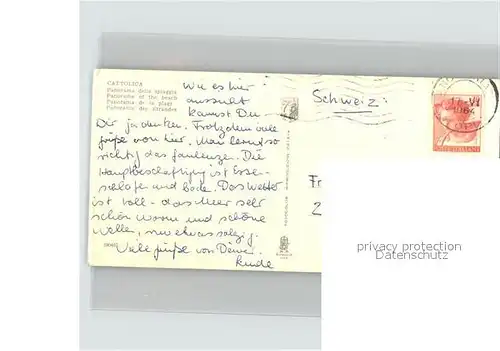 CATTOLICA
Panorama della spiaggia
Panorama of the beach
Panorama de la plage
Panorama des Strandes
Wie es hier
aussieht
kannst Du
Dir ja denken. Trotzdem viele
Grüße von hier. Man lernt so
richtig das faulenzen. Die
Hauptbeschäftigung ist Essen-
schlafe und bade. Das Wetter
ist toll - das Meer sehr
schön warm und schöne
Wellen, nur etwas salzig.
Viele Grüße von Deiner
Schweiz:
Fr
2
privacy protection
Datenschutz